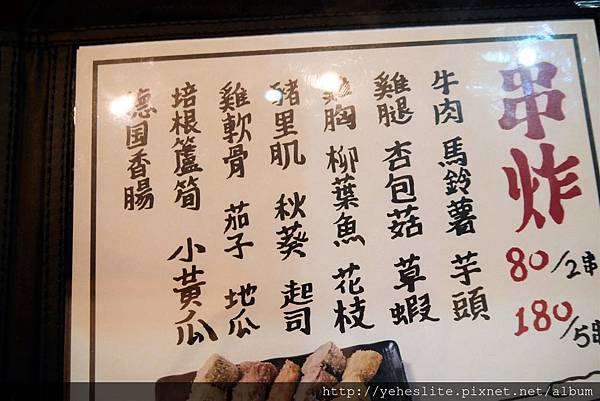 串炸
80/2串
180/5串
牛肉 馬鈴薯 芋頭
雞腿 杏包菇 草蝦
雞胸 柳葉魚 花枝
豬里肌 秋葵 起司
雞軟骨 茄子 地瓜
培根蘆筍 小黃瓜
德国香腸
http://yeheslite.pixnet.net/album